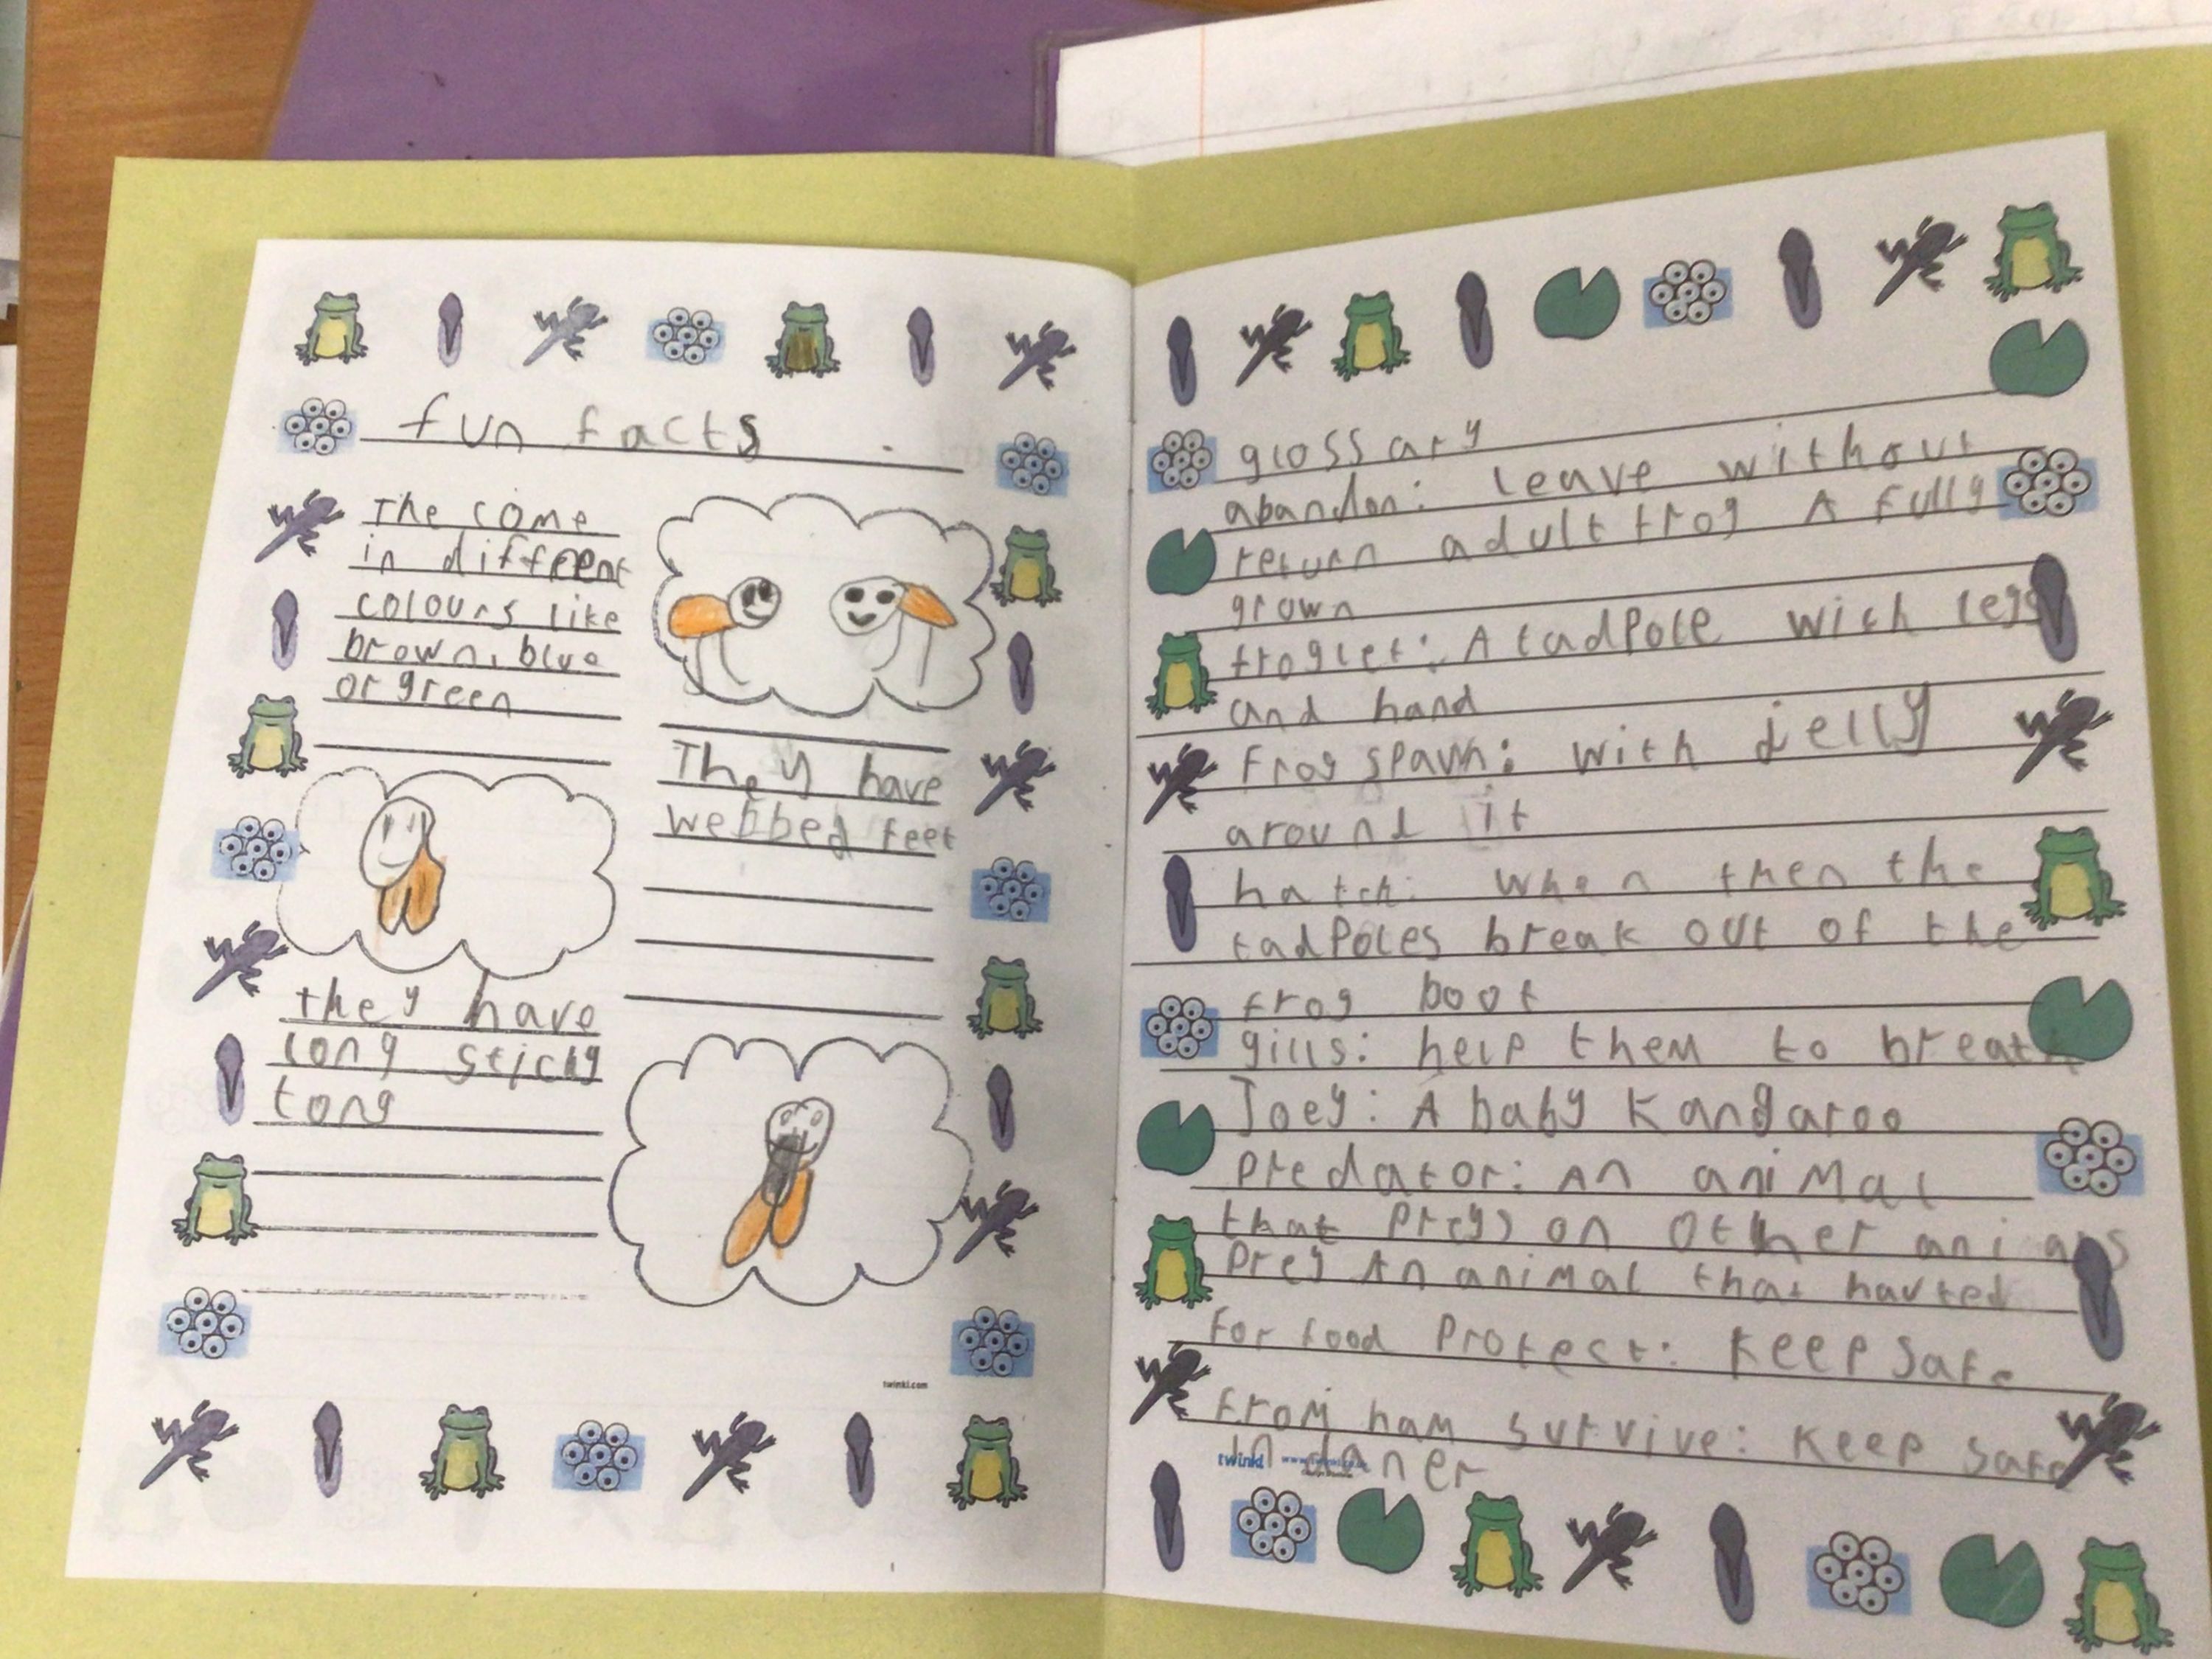 fun facts
The come
in different
colours like
brown, blue
or green
They have
webbed feet
they have
long sticky
tong
twinkl.com
glossary
abandon: leave without
return adult frog A fully
grown
froglet: A tadpole with legs
and hand
Frog spawn: with jelly
around it
hatch: when then the
tadpoles break out of the
frog boot
gills: help them to breath
Joey: A baby kangaroo
predator: An animal
that preys on other
prey An animal that
for food Protect: keep safe
from ham survive: keep safe
in daner
twinkl